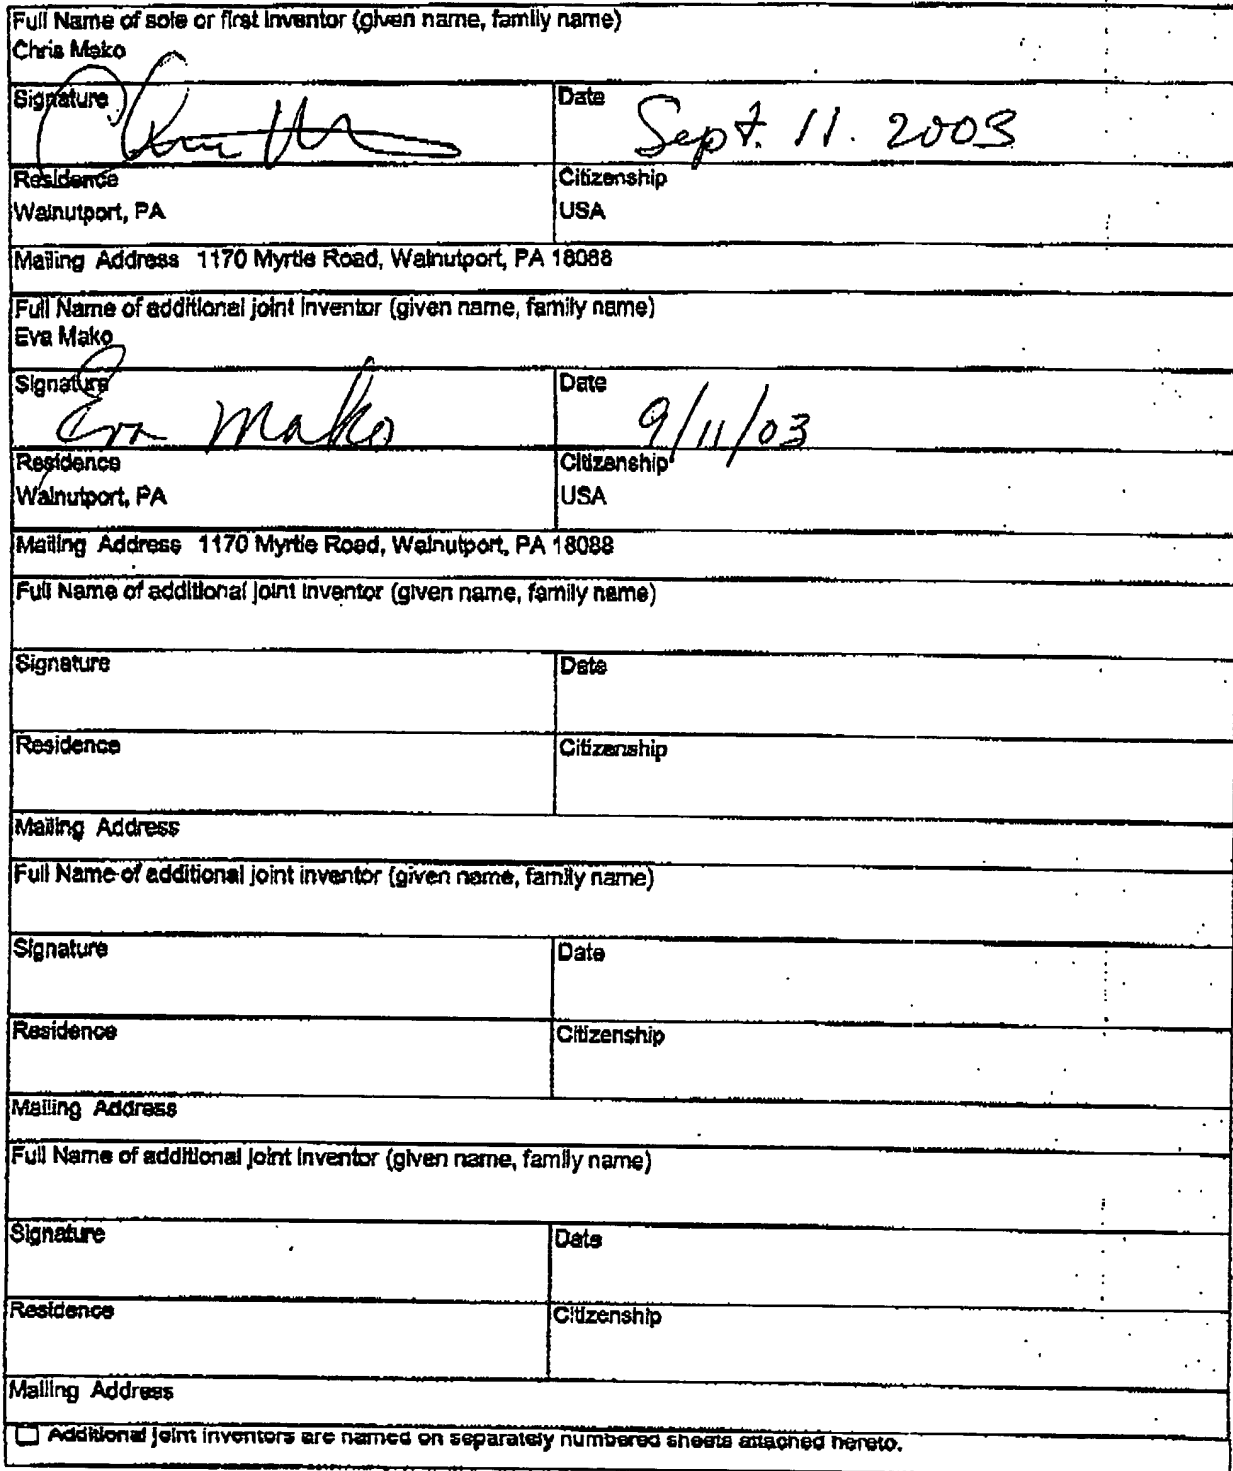 Full Name of sole or first inventor (given name, family name)
Chris Mako
Signature Date Sept. 11. 2003
Residence Citizenship
Walnutport, PA USA
Mailing Address 1170 Myrtle Road, Walnutport, PA 18088
Full Name of additional joint inventor (given name, family name)
Eva Mako
Signature Date
Eva Mako 9/11/03
Residence Citizenship
Walnutport, PA USA
Mailing Address 1170 Myrtle Road, Walnutport, PA 18088
Full Name of additional joint inventor (given name, family name)
Signature Date
Residence Citizenship
Mailing Address
Full Name of additional joint inventor (given name, family name)
Signature Date
Residence Citizenship
Mailing Address
Full Name of additional joint inventor (given name, family name)
Signature Date
Residence Citizenship
Mailing Address
Additional joint inventors are named on separately numbered sheets attached hereto.